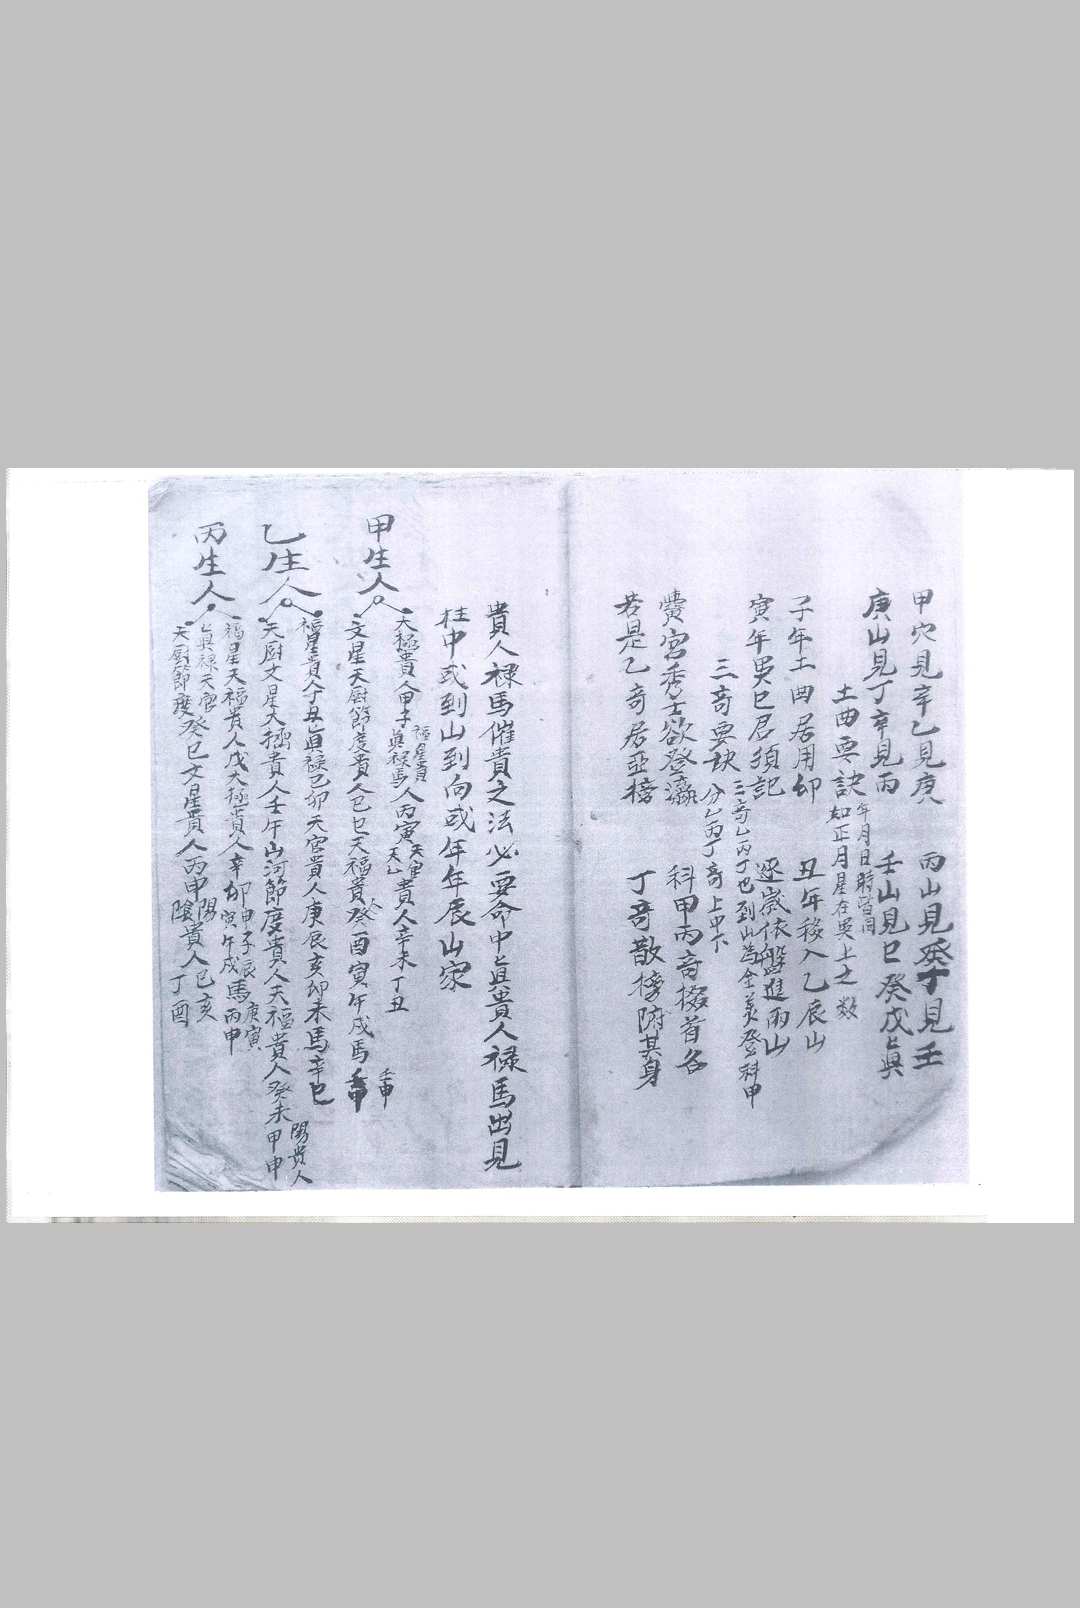 甲穴見辛乙見庚　丙山見癸丁見壬
庚山見丁辛見丙　壬山見巳癸戊真
土曲要訣年月日時皆同
如正月星在巽上之数
子年土曲居用卯　丑年移入乙辰山
寅年巽巳君須記　逐歲依盤進兩山
三奇要訣
三奇乙丙丁也到山為全美登科甲
分乙丙丁奇上中下
黌宮秀士欲登瀛　科甲丙奇掇首名
若是乙奇居亞榜　丁奇散榜附其身
貴人禄馬催貴之法必要命中真貴人禄馬出見
柱中或到山到向或年年辰山家
甲生人
太極貴人甲子福星貴真禄馬人丙寅天官天乙貴人辛未丁丑
文星天厨節度貴人巳巳天福貴人癸酉寅午戌馬壬申
壬申
乙生人
福星貴人丁丑真禄己卯天官貴人庚辰亥卯未馬辛巳
天厨文星太極貴人壬午山河節度貴人天福貴人癸未甲申
陽貴人
丙生人
福星天福貴人戊太極貴人辛卯甲子辰馬庚寅
真禄天官
寅午戌
丙申
天厨節度癸巳文星貴人丙申陽
陰貴人己亥
丁酉